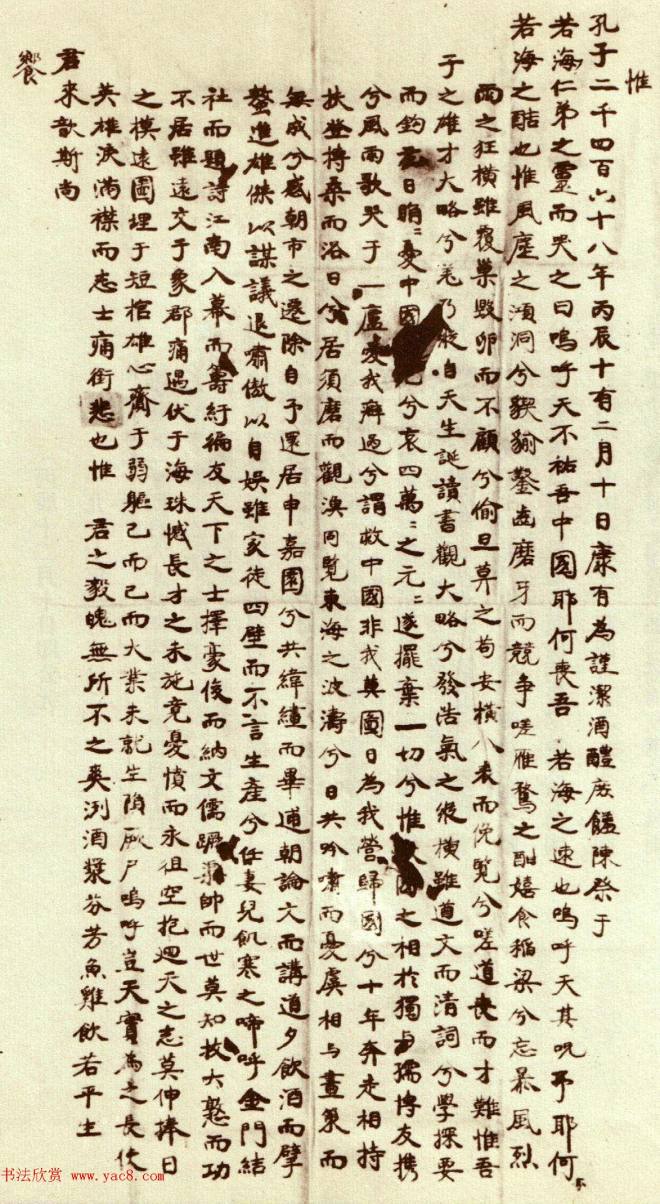 惟
孔子二千四百六十八年丙辰十有二月十日康有為謹潔酒醴庶饈陳祭于
若海仁弟之靈而哭之曰嗚呼天不祐吾中國耶何喪吾 若海之速也嗚呼天其呪予耶何
若海之酷也惟風塵之澒洞兮猰貐鑿齒磨牙而競爭嗟雁鶩之酣嬉食稻粱兮忘暴風烈
雨之狂橫雖覆巢毀卵而不顧兮偷旦莫之苟安橫八表而俛覽兮嗟道喪而才難惟吾
子之雄才大略兮羌乃 自天生誕讀書觀大略兮發浩氣之縱橫雖道文而清詞兮學探要
而鈎玄日睊二憂中國 兮哀四萬二之元二遂擺棄一切兮惟 國之相於獨與孺博友攜
兮風雨歌哭于一廬愛我癖過兮謂救中國非我莫圖日為我營歸國兮十年奔走相持
扶登摶桑而浴日兮居須磨而觀澳同覧東海之波濤兮日共吟嘯而憂虞相与畫策而
無成兮感朝市之遷除自予還居申嘉園兮共緯繣而畢逋朝論文而講道夕飲酒而擘
蟹進雄傑以謀議退嘯傲以自娛雖家徒四壁而不言生產兮任妻兒飢寒之啼呼金門結
社而題詩江南入幕而籌紓徧友天下之士擇豪俊而納文儒躡 帥而世莫知拔大憝而功
不居雖遠交于象郡痛遇伏于海珠憾長才之未施竟憂憤而永徂空抱迴天之志莫伸捧日
之模遠圖埋于短棺雄心齊于弱軀已而已而大業未就生隕厥尸嗚呼豈天實為之長使
英雄淚滿襟而志士痛銜悲也惟 君之毅魄無所不之奠洌酒漿芬芳魚雞飲若平生
君來歆斯尚
饗
书法欣赏 www.yac8.com